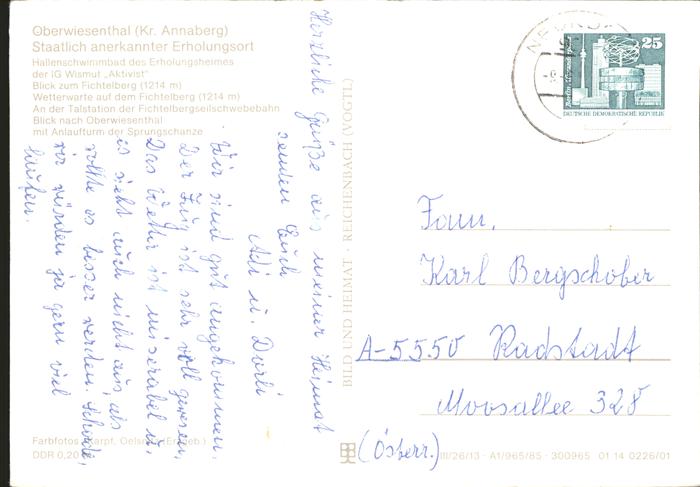 Oberwiesenthal (Kr. Annaberg)
Staatlich anerkannter Erholungsort
Hallenschwimmbad des Erholungsheimes
der IG Wismut „Aktivist"
Blick zum Fichtelberg (1214 m)
Wetterwarte auf dem Fichtelberg (1214 m)
An der Talstation der Fichtelbergseilschwebebahn
Blick nach Oberwiesenthal
mit Anlaufturm der Sprungschanze
Herzliche Grüße aus meiner Heimat
senden Euch
Adi u. Dorli
Wir sind gut angekommen.
Der Zug ist sehr voll gewesen.
Das Wetter ist miserabel u.
es sieht auch nicht aus, als
sollte es besser werden. Schade,
wir würden ja gern viel
laufen.
BILD UND HEIMAT · REICHENBACH (VOGTL)
25
DEUTSCHE DEMOKRATISCHE REPUBLIK
Fam.
Karl Bergschober
A-5550 Radstadt
Moosallee 328
(Österr.)
Farbfotos
DDR 0,20
III/26/13 · A1/965/85 · 300965 01 14 0226/01